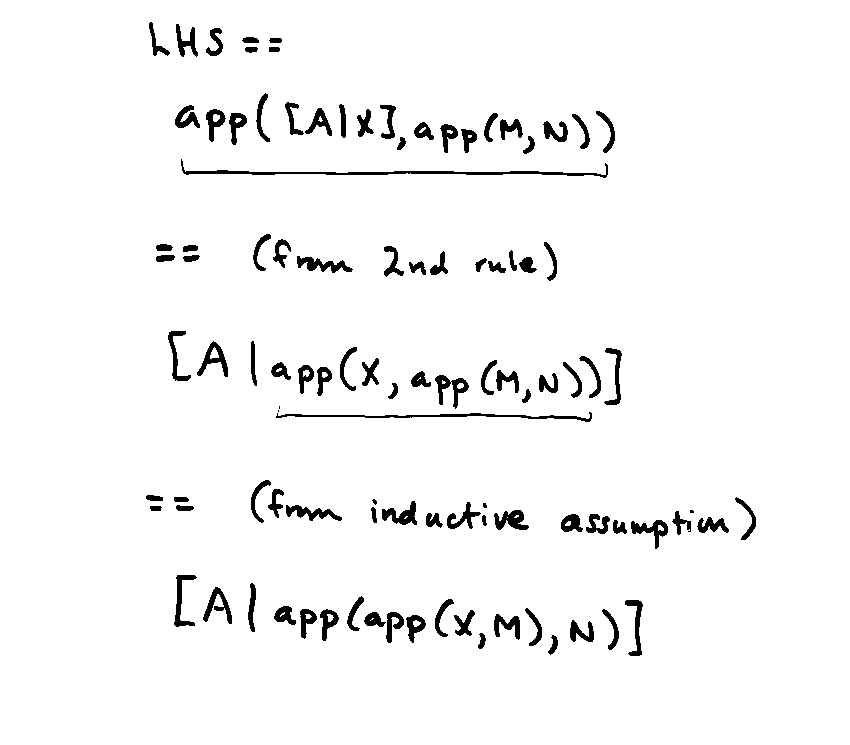 LHS ==
app([A|X],app(M,N))
== (from 2nd rule)
[A|app(X,app(M,N))]
== (from inductive assumption)
[A|app(app(X,M),N)]